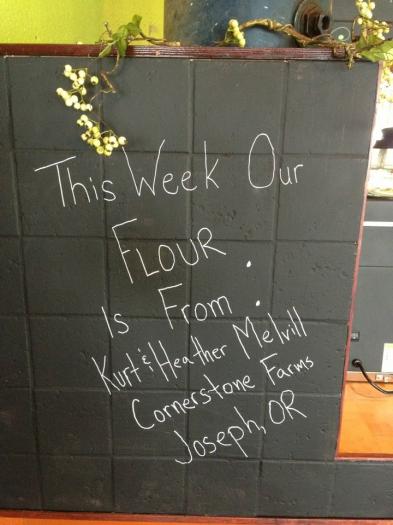 This Week Our
FLOUR
Is From :
Kurt & Heather Melvill
Cornerstone Farms
Joseph, OR